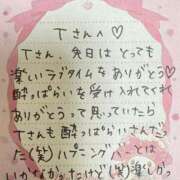 Tさんへ♡
Tさん、先日はとっても
楽しいラブタイムを
ありがとう♡
酔っぱらいを受け入れてくれて
ありがとうって思っていたら
Tさんも酔っぱらいさんだっ
た(笑)ハプニング　ことは
いかなかったけど(笑)楽しかっ